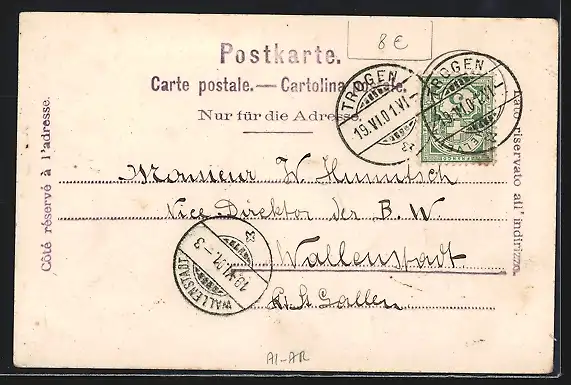 8 €
Postkarte.
Carte postale.— Cartolina
Nur für die Adresse.
TROGEN
19.VI.01.VI-
TROGEN
Côté réservé à l'adresse.
Lato riservato all' indirizzo.
Monsieur W.
Vice Direktor der B. W.
Wallenstadt
Kt. St. Gallen
WALLENSTADT
19.VI.01.-3
AI-AR